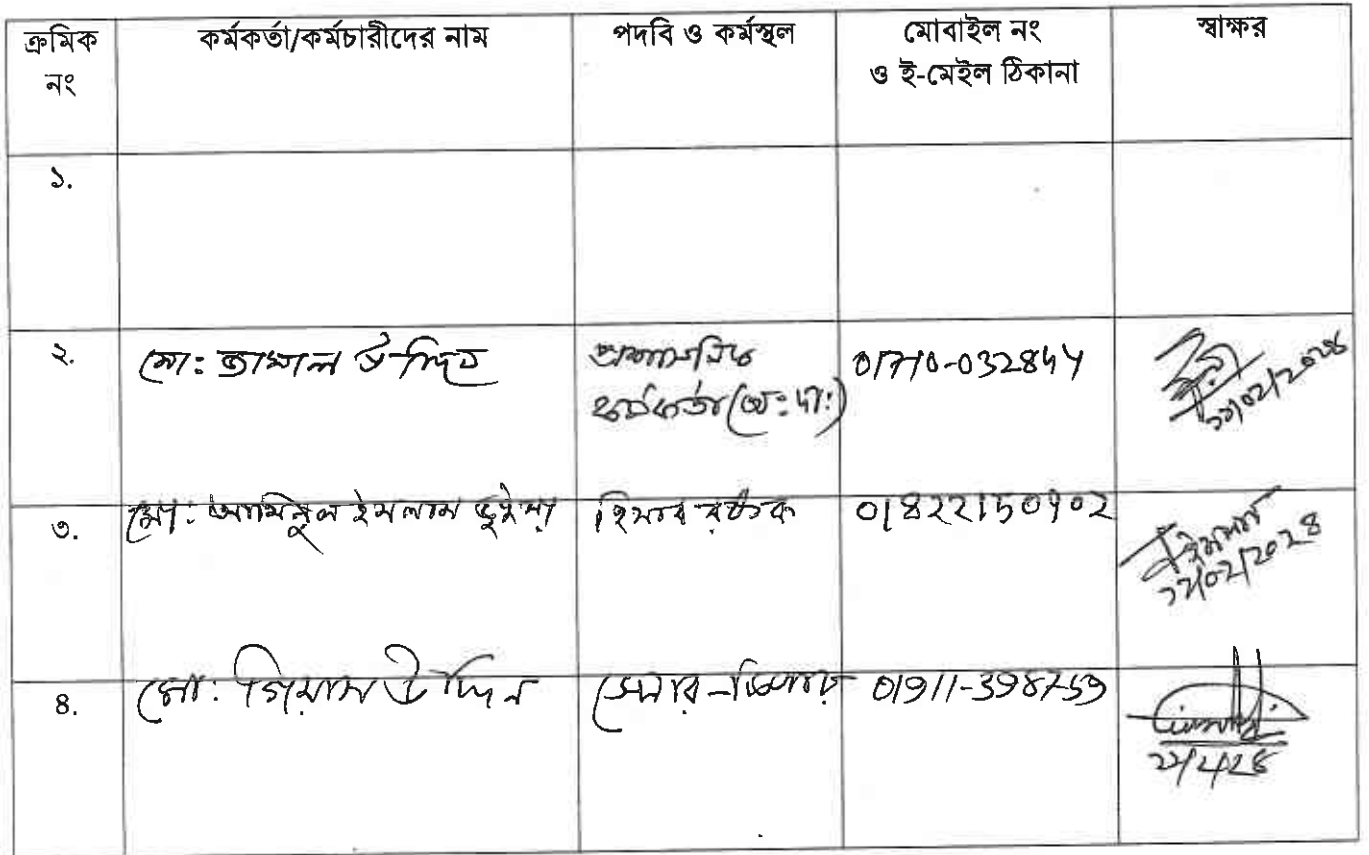 ক্রমিক নং
কর্মকর্তা/কর্মচারীদের নাম
পদবি ও কর্মস্থল
মোবাইল নং
ও ই-মেইল ঠিকানা
স্বাক্ষর
১.
২.
মো: জামাল উদ্দিন
প্রশাসনিক
কর্মকর্তা (অ: দা:)
01710-032844
২২/০২/২০২৪
৩.
মো: আমিনুল ইসলাম ভূইয়া
হিসাব রক্ষক
২২/০২/২০২৪
৪.
মো: গিয়াস উদ্দিন
01911-398759
২২/২/২৪